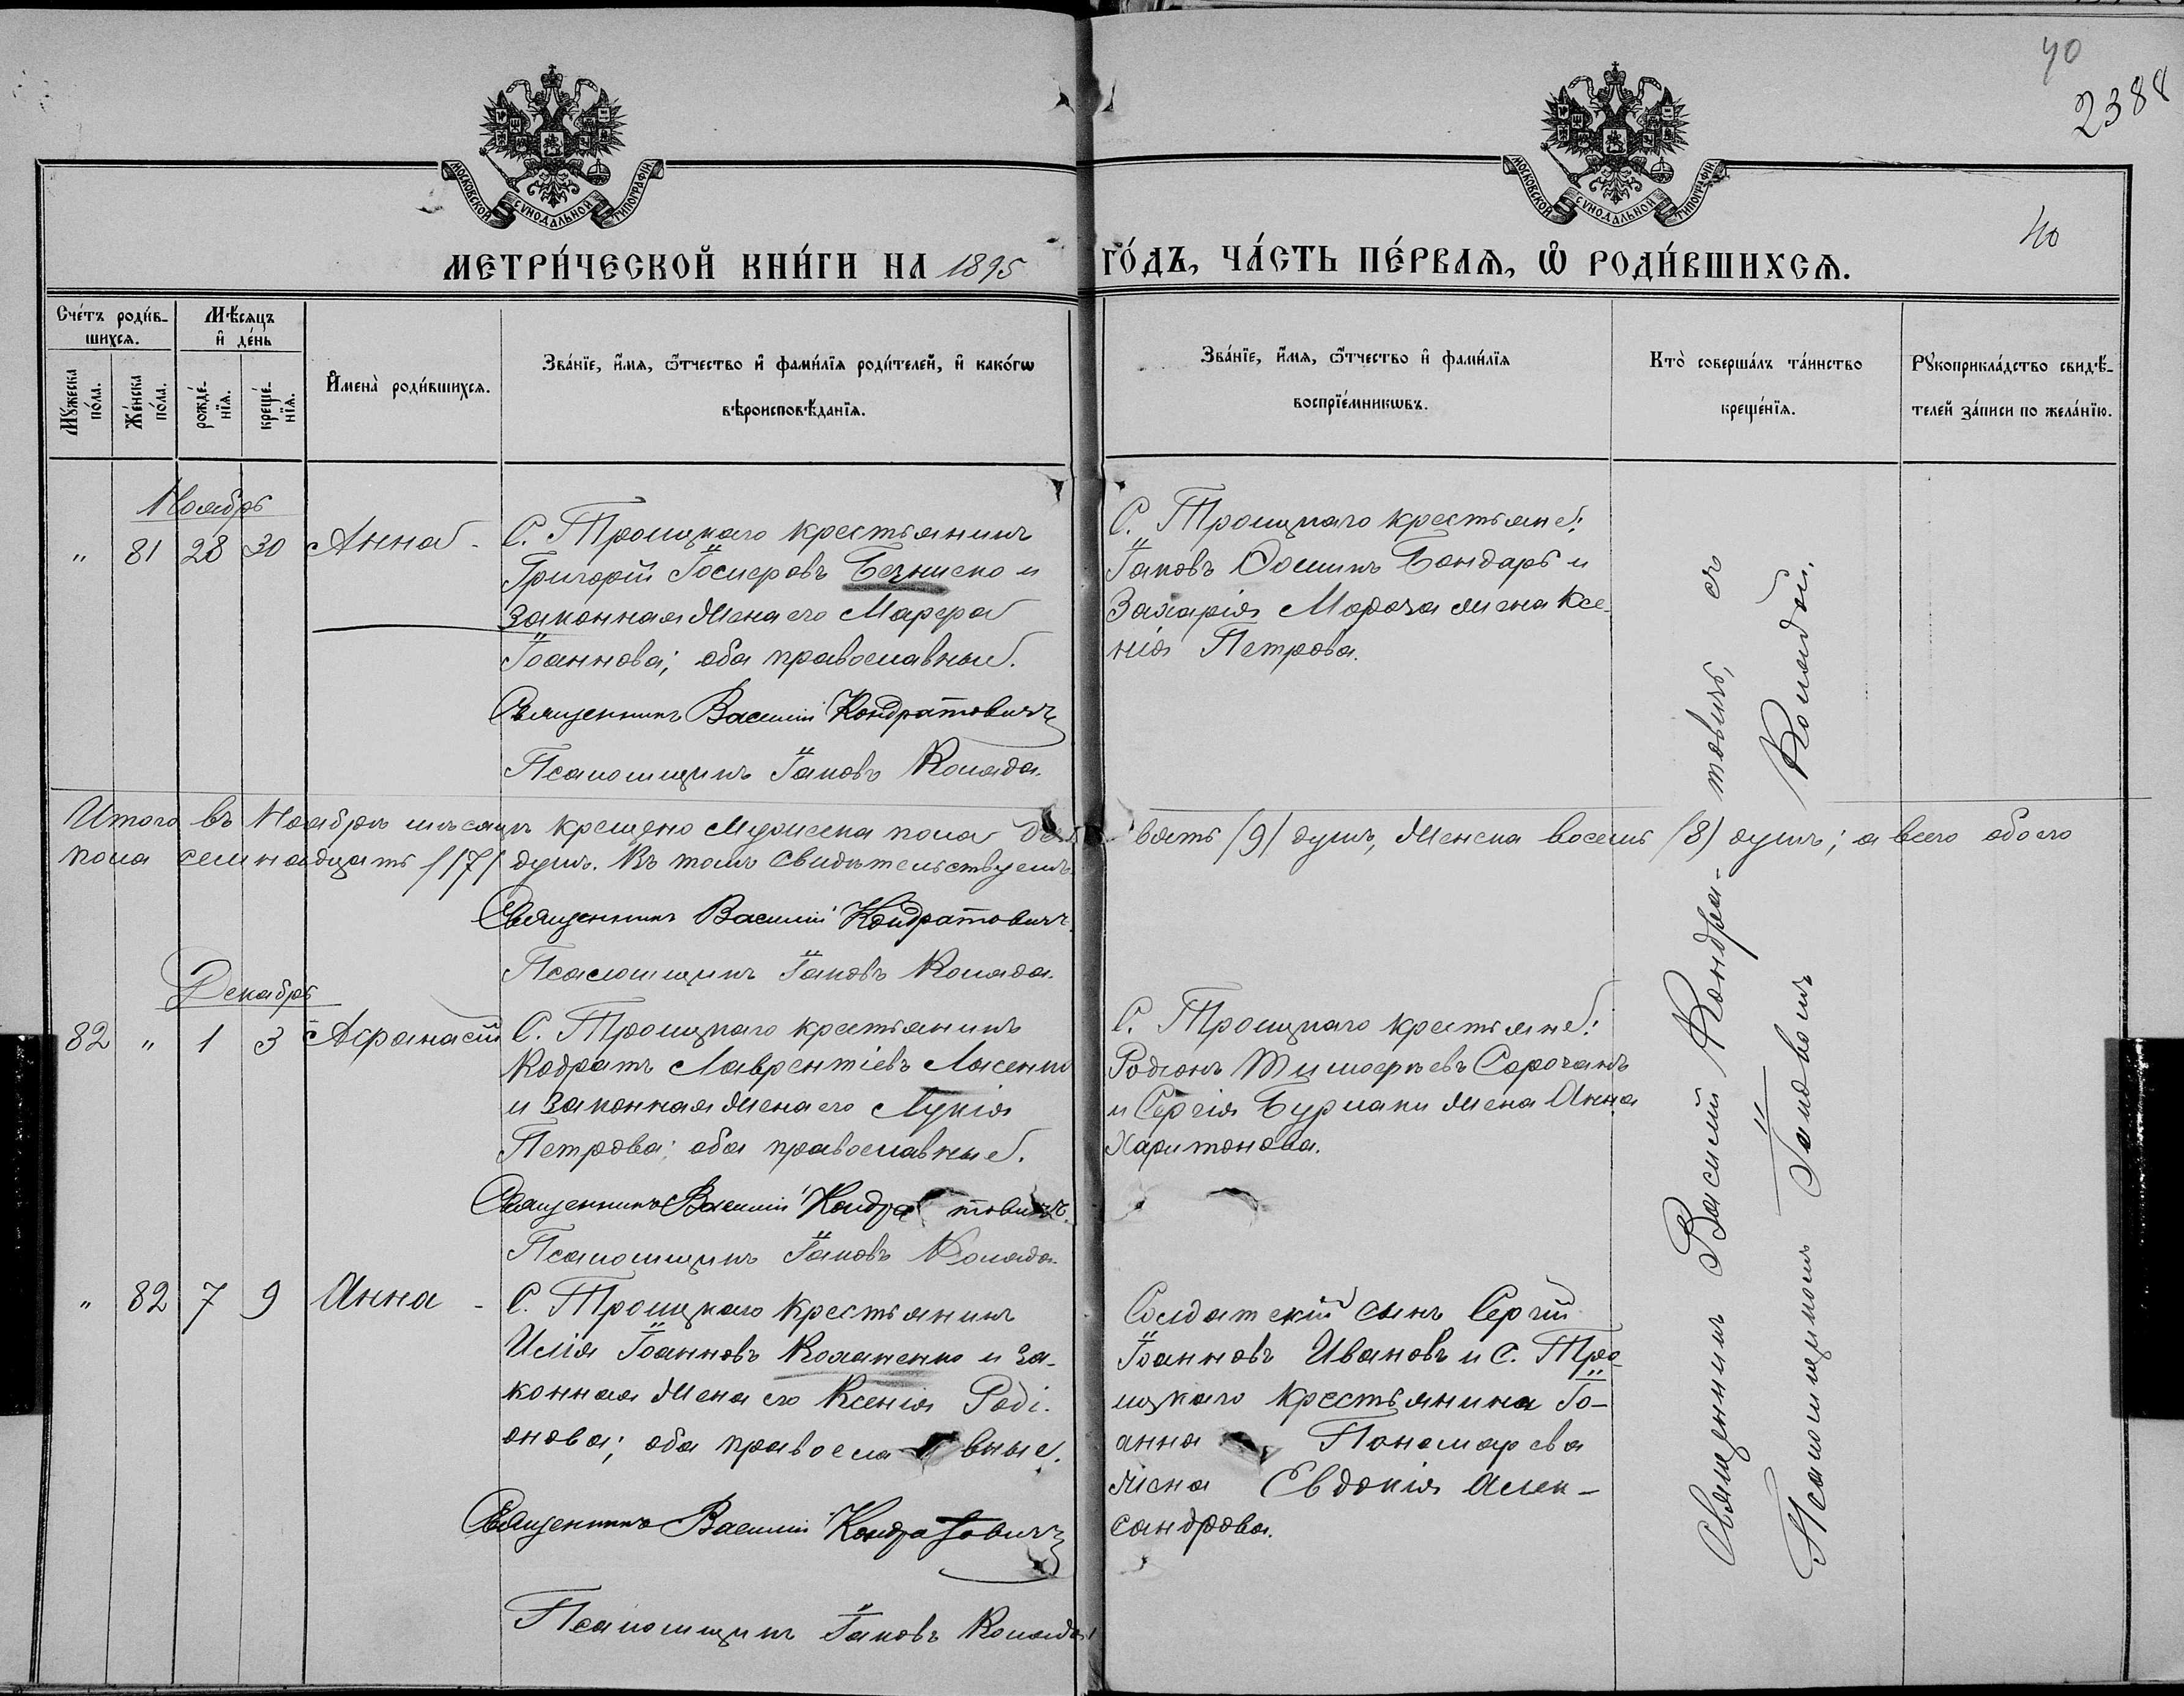 40
2388
МОСКОВСКОЙ СѴНОДАЛЬНОЙ ТИПОГРАФІИ
МОСКОВСКОЙ СѴНОДАЛЬНОЙ ТИПОГРАФІИ
40
МЕТРИ́ЧЕСКОЙ КНИ́ГИ НА 1895 ГО́ДЪ, ЧА́СТЬ ПЕ́РВАѦ, Ѡ҆ РОДИ́ВШИХСѦ.
Сче́тъ роди́в-
шихсѧ.
Мѣ́сѧцъ
и҆ де́нь
Мꙋ́жеска
по́ла.
Же́нска
по́ла.
рожде́-
нїѧ.
креще́-
нїѧ.
И҆мена̀ роди́вшихсѧ.
Зва́нїе, и҆́мѧ, ѻ҆́тчество и҆ фами́лїѧ роди́телей, и҆ како́гѡ
вѣроисповѣ́данїѧ.
Зва́нїе, и҆́мѧ, ѻ҆́тчество и҆ фами́лїѧ
воспрїе́мникѡвъ.
Кто̀ соверша́лъ та́инство
креще́нїѧ.
Рꙋкоприкла́дство свидѣ́-
телей за́писи по жела́нїю.
Ноябрь
" 81 28 30 Анна - С. Троицкаго крестьянинъ
Григорій Іосифовъ Безниско и
законная жена его Марфа
Іоаннова; оба православные.
Священникъ Василій Кондратовичъ
Псаломщикъ Іаковъ Коляда.
С. Троицкаго крестьяне:
Іаковъ Ѳоминъ Бондарь и
Захарія Мороза жена Ксе-
нія Петрова.
Итого въ Ноябрѣ мѣсяцѣ крещено мужеска пола девять (9) душъ, женска восемь (8) душъ; а всего обоего
пола семнадцать (17) душъ. Въ томъ свидѣтельствуемъ
Священникъ Василій Кондратовичъ.
Псаломщикъ Іаковъ Коляда.
Декабрь
82 " 1 3 Аѳанасій С. Троицкаго крестьянинъ
Кодратъ Лаврентіевъ Лысенко
и законная жена его Лукія
Петрова; оба православные.
Священникъ Василій Кондратовичъ.
Псаломщикъ Іаковъ Коляда.
С. Троицкаго крестьяне:
Родіонъ Тимоѳеевъ Сорочанъ
и Сергія Бурлаки жена Анна
Харитонова.
" 82 7 9 Анна - С. Троицкаго крестьянинъ
Илія Іоанновъ Коханенко и за-
конная жена его Ксенія Роді-
онова; оба православные.
Священникъ Василій Кондратовичъ
Псаломщикъ Іаковъ Коляда
Солдатскій сынъ Сергій
Іоанновъ Ивановъ и С. Тро-
ицкаго крестьянина Іо-
анна Пономарева
жена Евдокія Алек-
сандрова.
Священникъ Василій Кондра-товичъ, съ
Псаломщикомъ Іаковомъ Колядой.